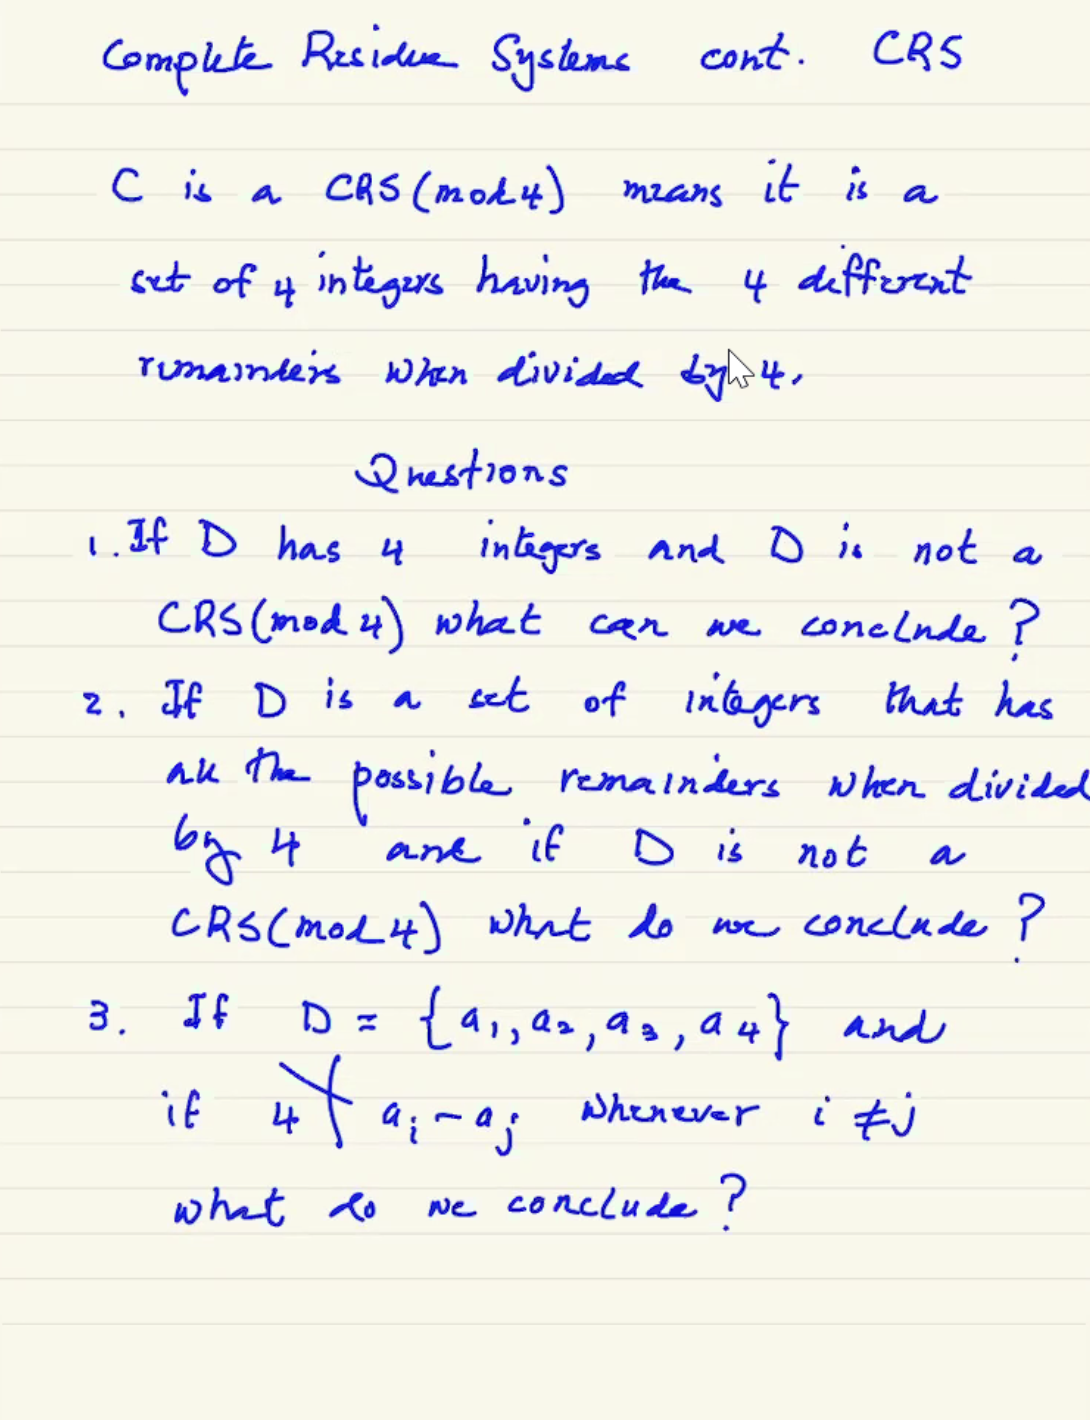 Complete Residue Systems cont. CRS
C is a CRS (mod 4) means it is a
set of 4 integers having the 4 different
remainders when divided by 4.
Questions
1. If D has 4 integers and D is not a
CRS (mod 4) what can we conclude?
2. If D is a set of integers that has
all the possible remainders when divided
by 4 and if D is not a
CRS (mod 4) what do we conclude?
3. If D = {a₁, a₂, a₃, a₄} and
if 4 ∤ aᵢ - aⱼ whenever i ≠ j
what do we conclude?